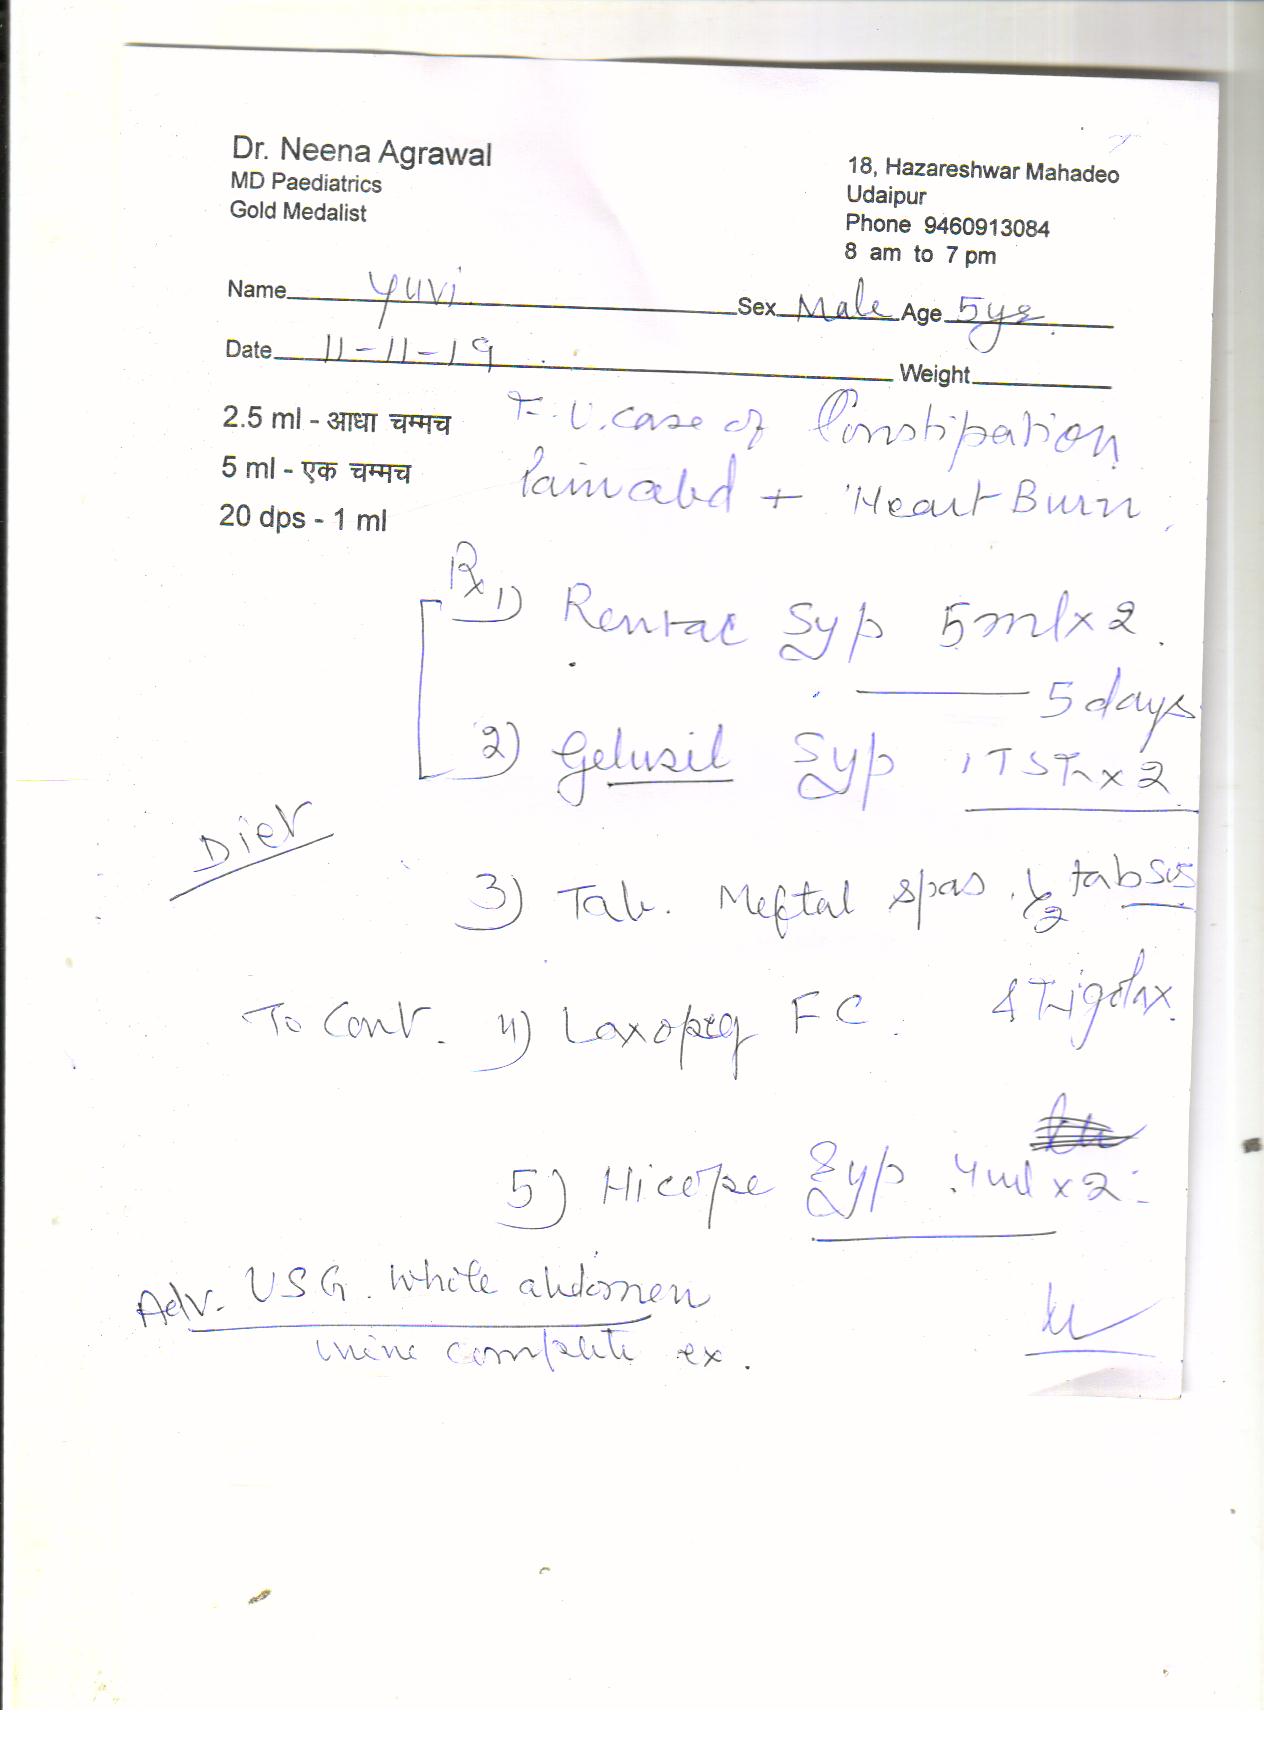 Dr. Neena Agrawal
MD Paediatrics
Gold Medalist
18, Hazareshwar Mahadeo
Udaipur
Phone 9460913084
8 am to 7 pm
Name Yuvi Sex Male Age 5 yrs
Date 11-11-19 Weight
2.5 ml - आधा चम्मच
5 ml - एक चम्मच
20 dps - 1 ml
F.U. case of Constipation
Pain abd + Heart Burn
Rx 1) Rentac Syp 5ml x 2
5 days
2) Gelusil Syp 1 TSF x 2
Diet
3) Tab. Meftal spas 1/2 tab SOS
To Cont. 4) Laxopeg FC.
5) Hicope Syp 4ml x 2
Adv. USG. White abdomen
urine complete ex.